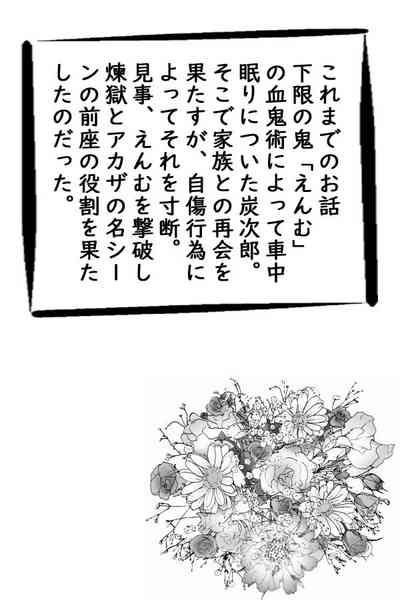 これまでのお話
下限の鬼「えんむ」
の血鬼術によって車中
眠りについた炭次郎。
そこで家族との再会を
果たすが、自傷行為に
よってそれを寸断。
見事、えんむを撃破し
煉獄とアカザの名シー
ンの前座の役割を果た
したのだった。